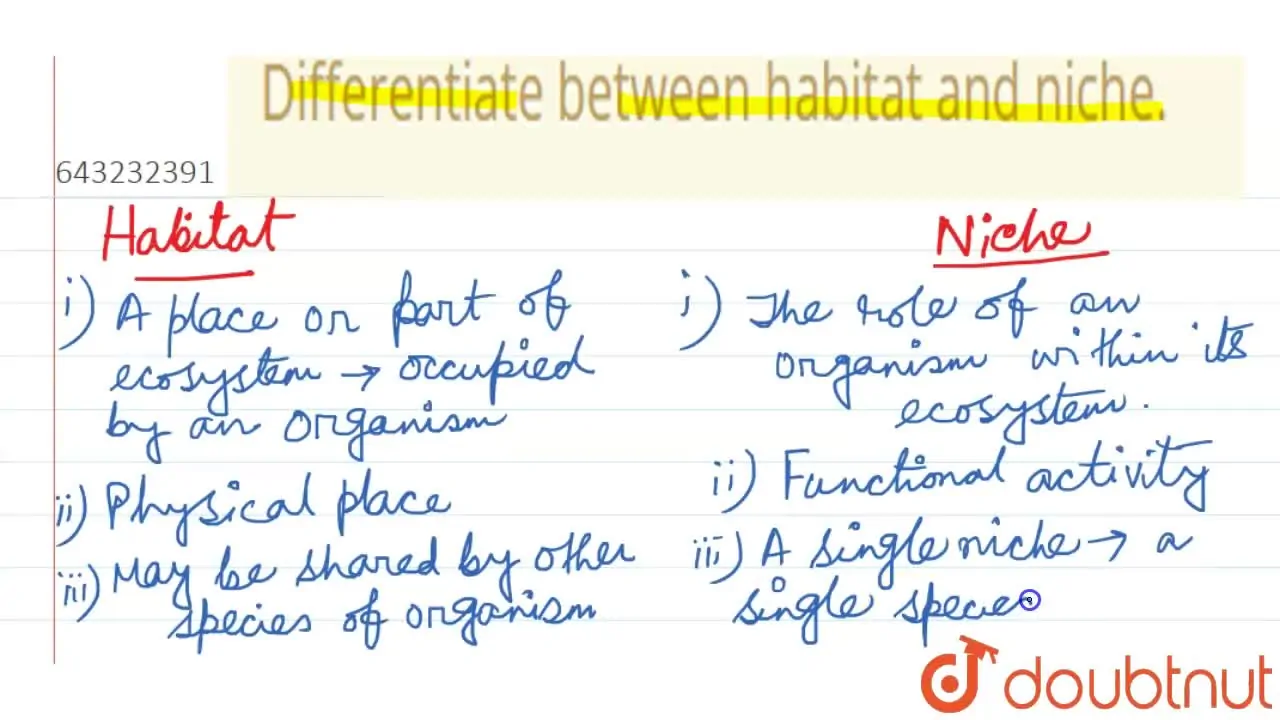 Differentiate between habitat and niche.
643232391
Habitat
i) A place or part of
ecosystem → occupied
by an organism
ii) Physical place
iii) May be shared by other
species of organism
Niche
i) The role of an
organism within its
ecosystem.
ii) Functional activity
iii) A single niche → a
single species
doubtnut